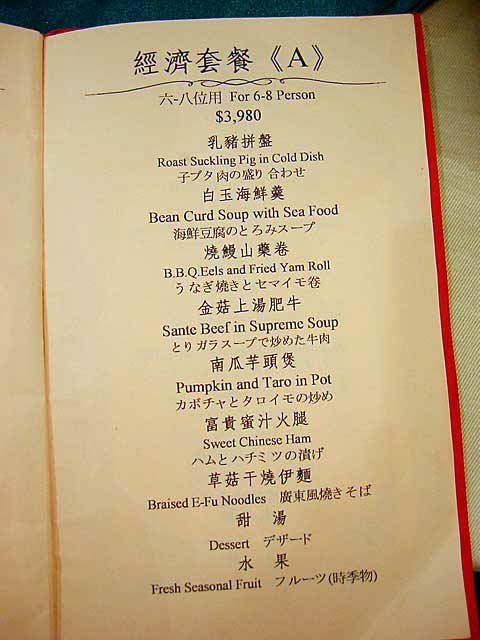 經濟套餐《A》
六-八位用 For 6-8 Person
$3,980
乳豬拼盤
Roast Suckling Pig in Cold Dish
子ブタ肉の盛り合わせ
白玉海鮮羹
Bean Curd Soup with Sea Food
海鮮豆腐のとろみスープ
燒鰻山藥卷
B.B.Q.Eels and Fried Yam Roll
うなぎ燒きとセマイモ卷
金菇上湯肥牛
Sante Beef in Supreme Soup
とりガラスープで炒めた牛肉
南瓜芋頭煲
Pumpkin and Taro in Pot
カボチャとタロイモの炒め
富貴蜜汁火腿
Sweet Chinese Ham
ハムとハチミツの漬げ
草菇干燒伊麵
Braised E-Fu Noodles 廣東風燒きそば
甜 湯
Dessert デザード
水 果
Fresh Seasonal Fruit フルーツ(時季物)